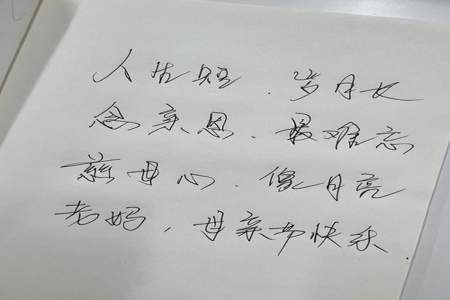 人生短.岁月长
念亲恩.最难忘
慈母心.像月亮
老妈，母亲节快乐